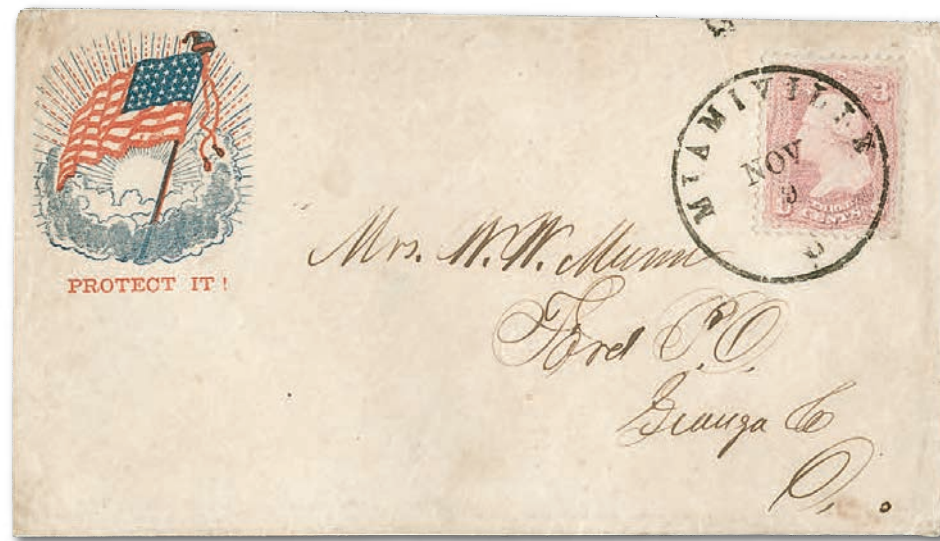 PROTECT IT!
MIAMIVILLE O
NOV
9
3
3 CENTS
Mrs. W. W. Munn
Ford P.O.
Geauga Co
O.